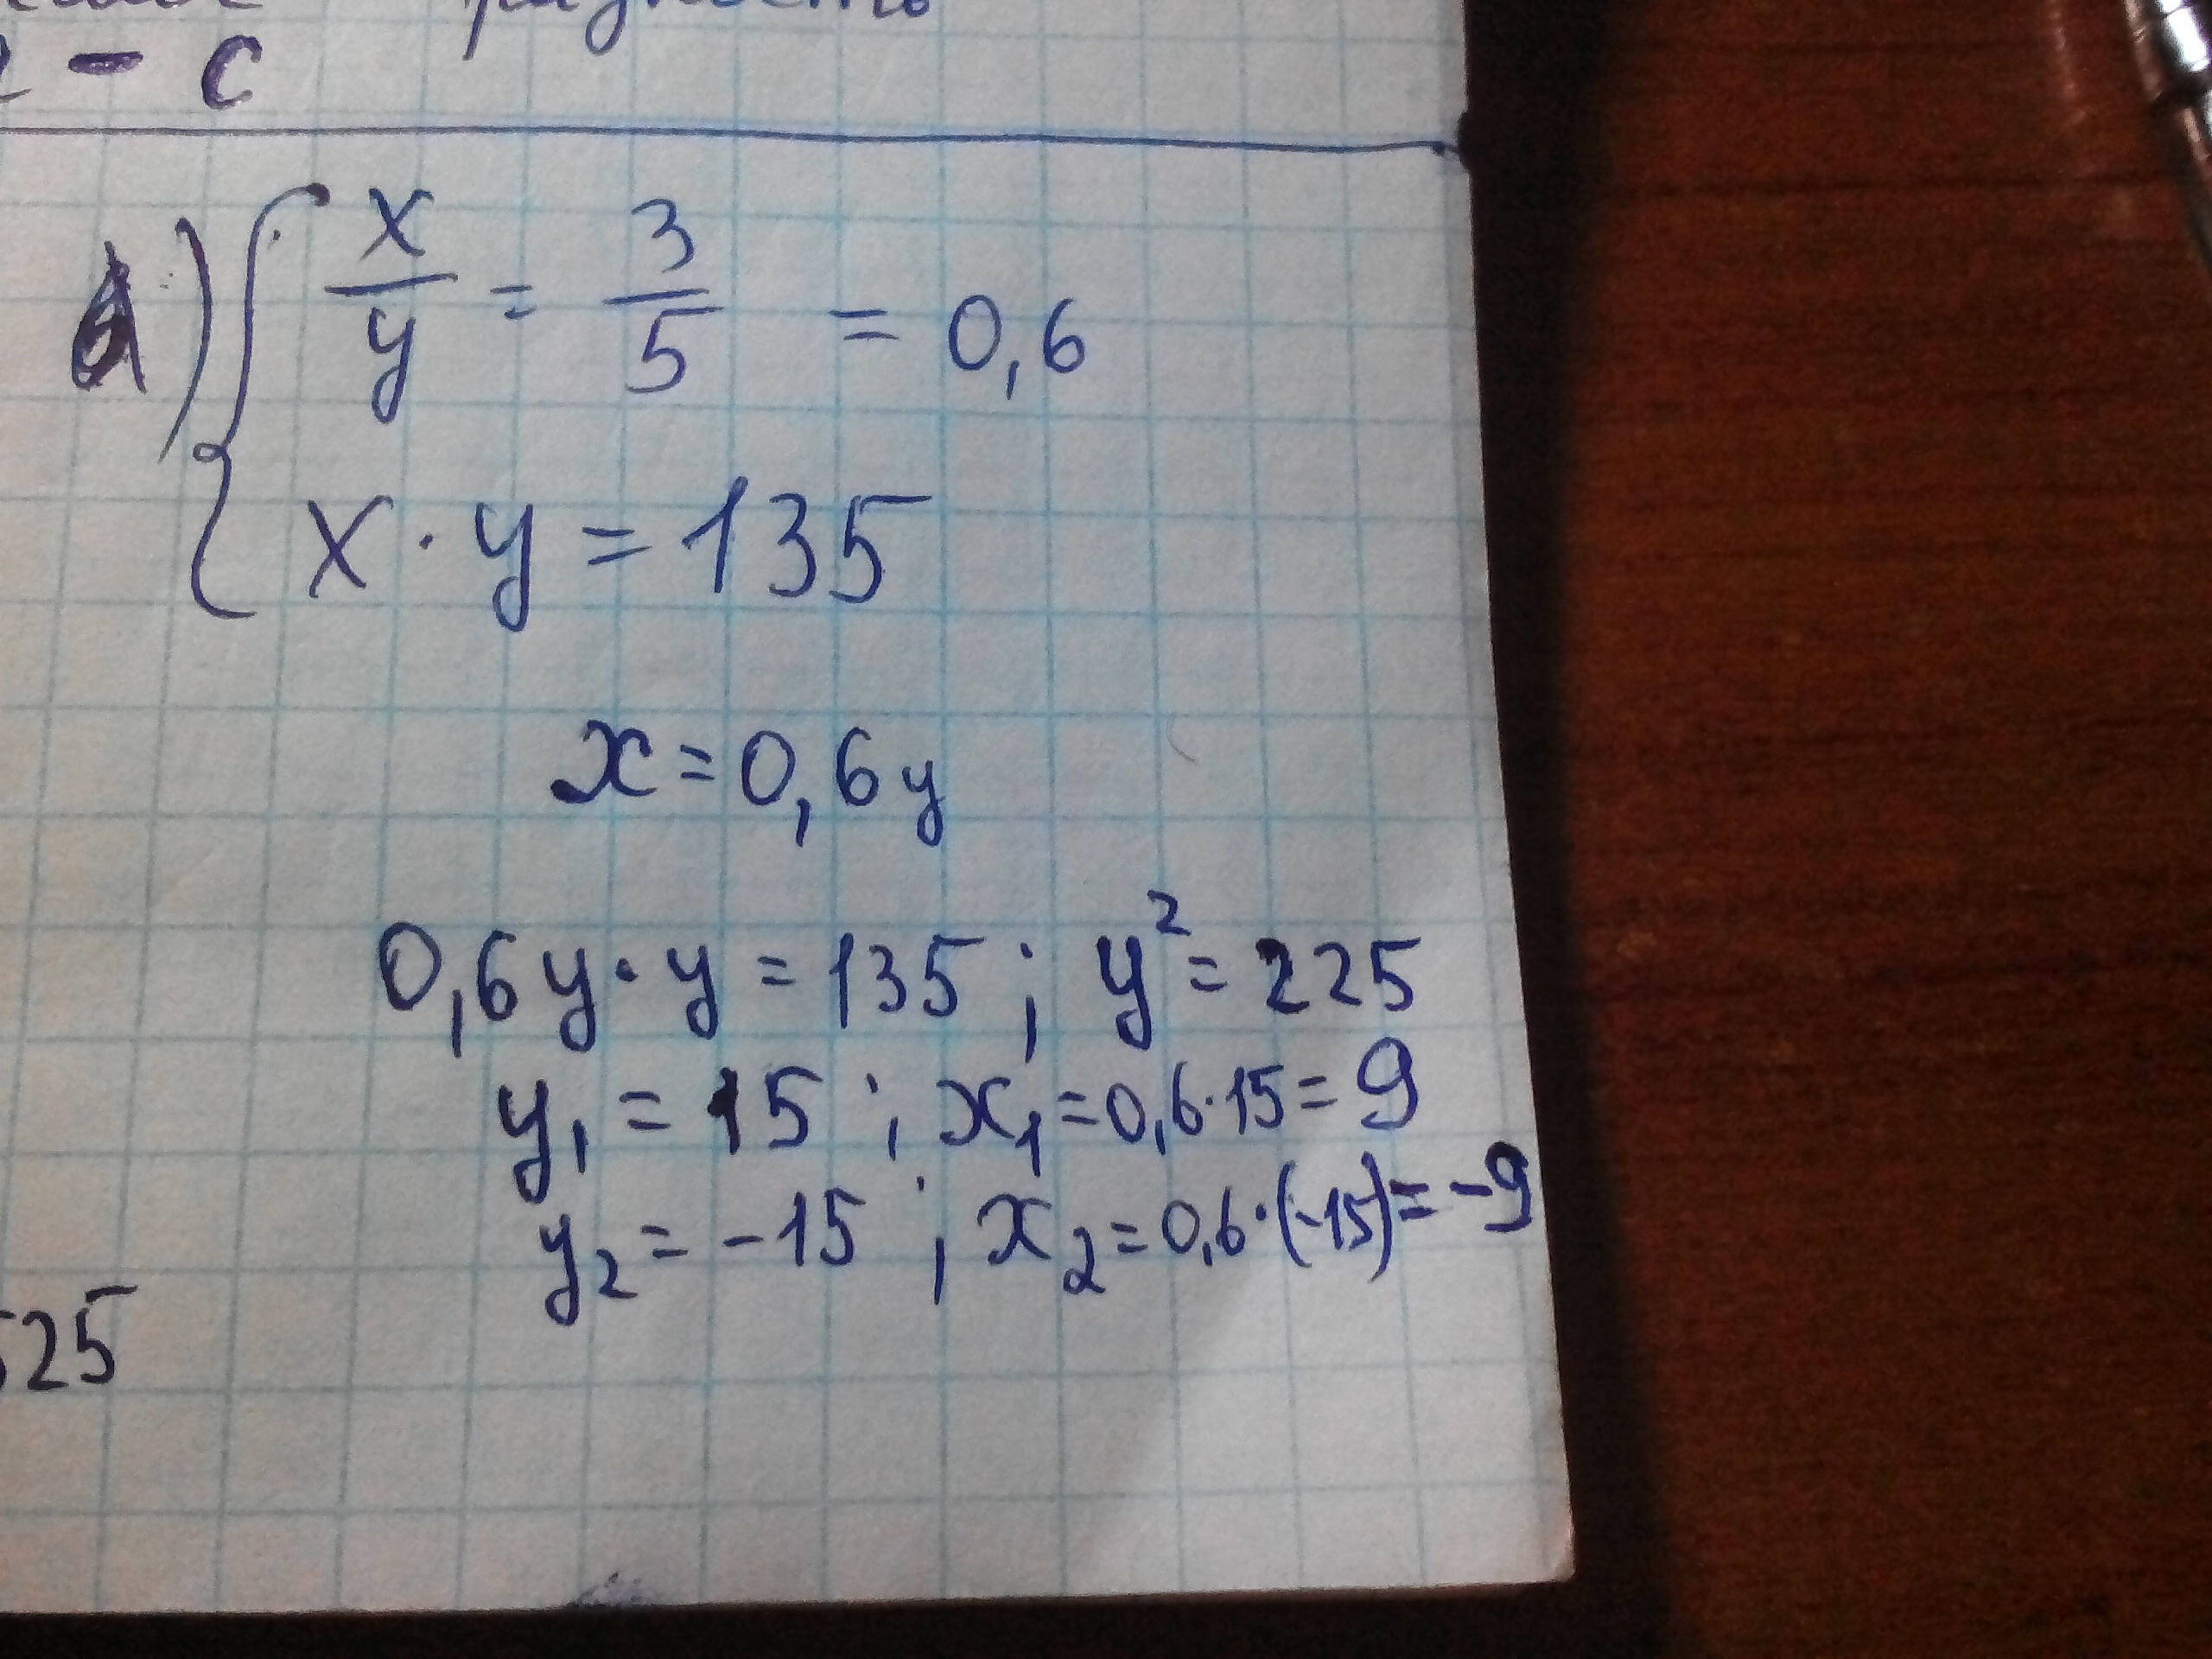 - c разность
а) { x/y = 3/5 = 0,6
x · y = 135
x = 0,6y
0,6y · y = 135 ; y² = 225
y₁ = 15 ; x₁ = 0,6 · 15 = 9
y₂ = -15 ; x₂ = 0,6 · (-15) = -9
525